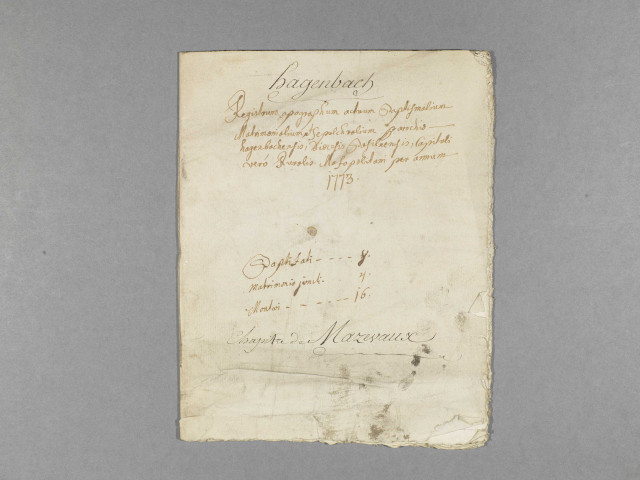 hagenbach
Registrum apographum actuum Baptismalium
Matrimonialium et Sepulchralium parochiæ
hagenbachensis, Diœcesis Basileensis, Capituli
vero Ruralis Masopolitani pro annum
1773.
Baptisati - - - -
Matrimonio juncti -
Mortui - - - - - - 16.
Chapitre de Mazevaux